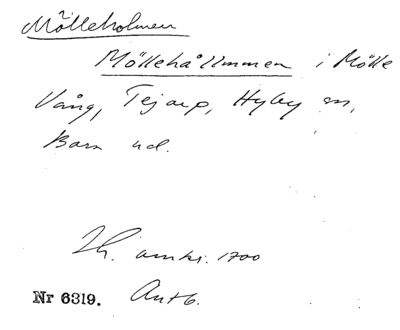 Mölleholmen
Möllehållmmen i Mölle
Vång, Tejarp, Hyby sn,
Bara hd.
Th. omkr. 1700
Nr 6319. Ant 6.